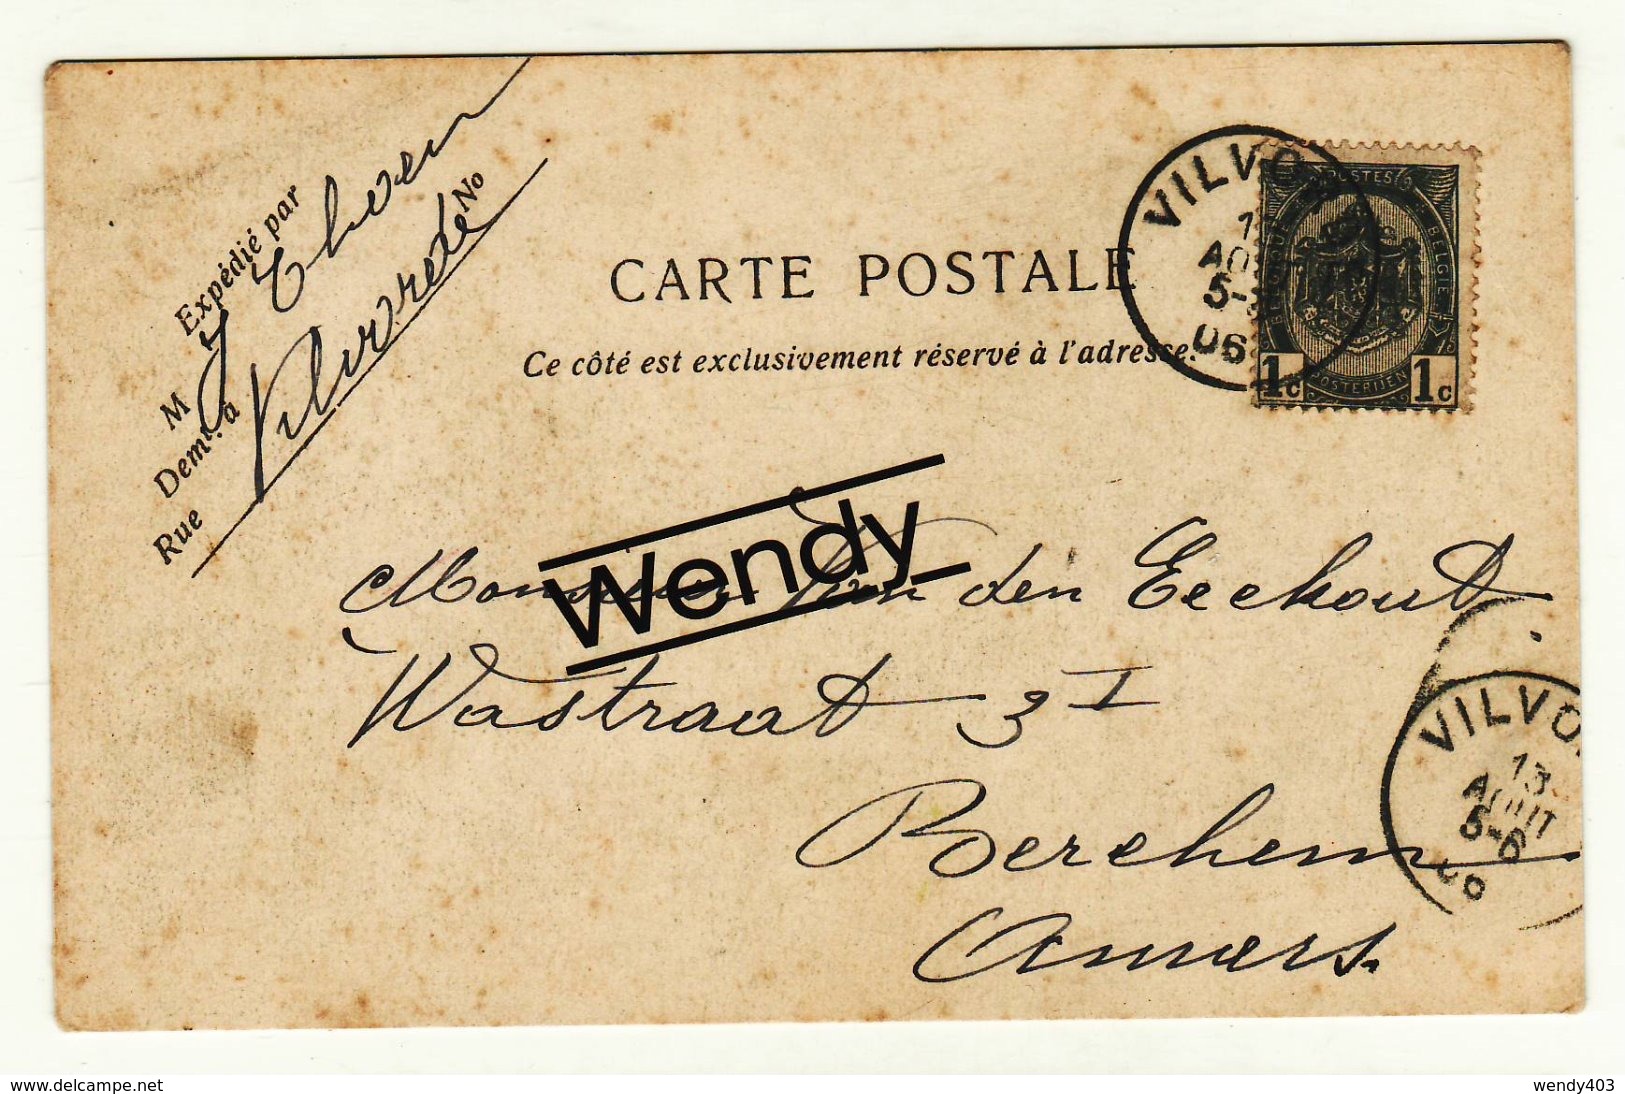 Expédié par
M J
Dem.t à Vilvorde
Rue No
CARTE POSTALE
Ce côté est exclusivement réservé à l'adresse.
VILVO
AO
5-
06
POSTES
BELGIQUE BELGIE
POSTERIJEN
1c 1c
Wendy
Monsieur Van den Eeckout
Wastraat 3 I
Berchem
Anvers.
VILVO
13
AOUT
5-6
www.delcampe.net
wendy403